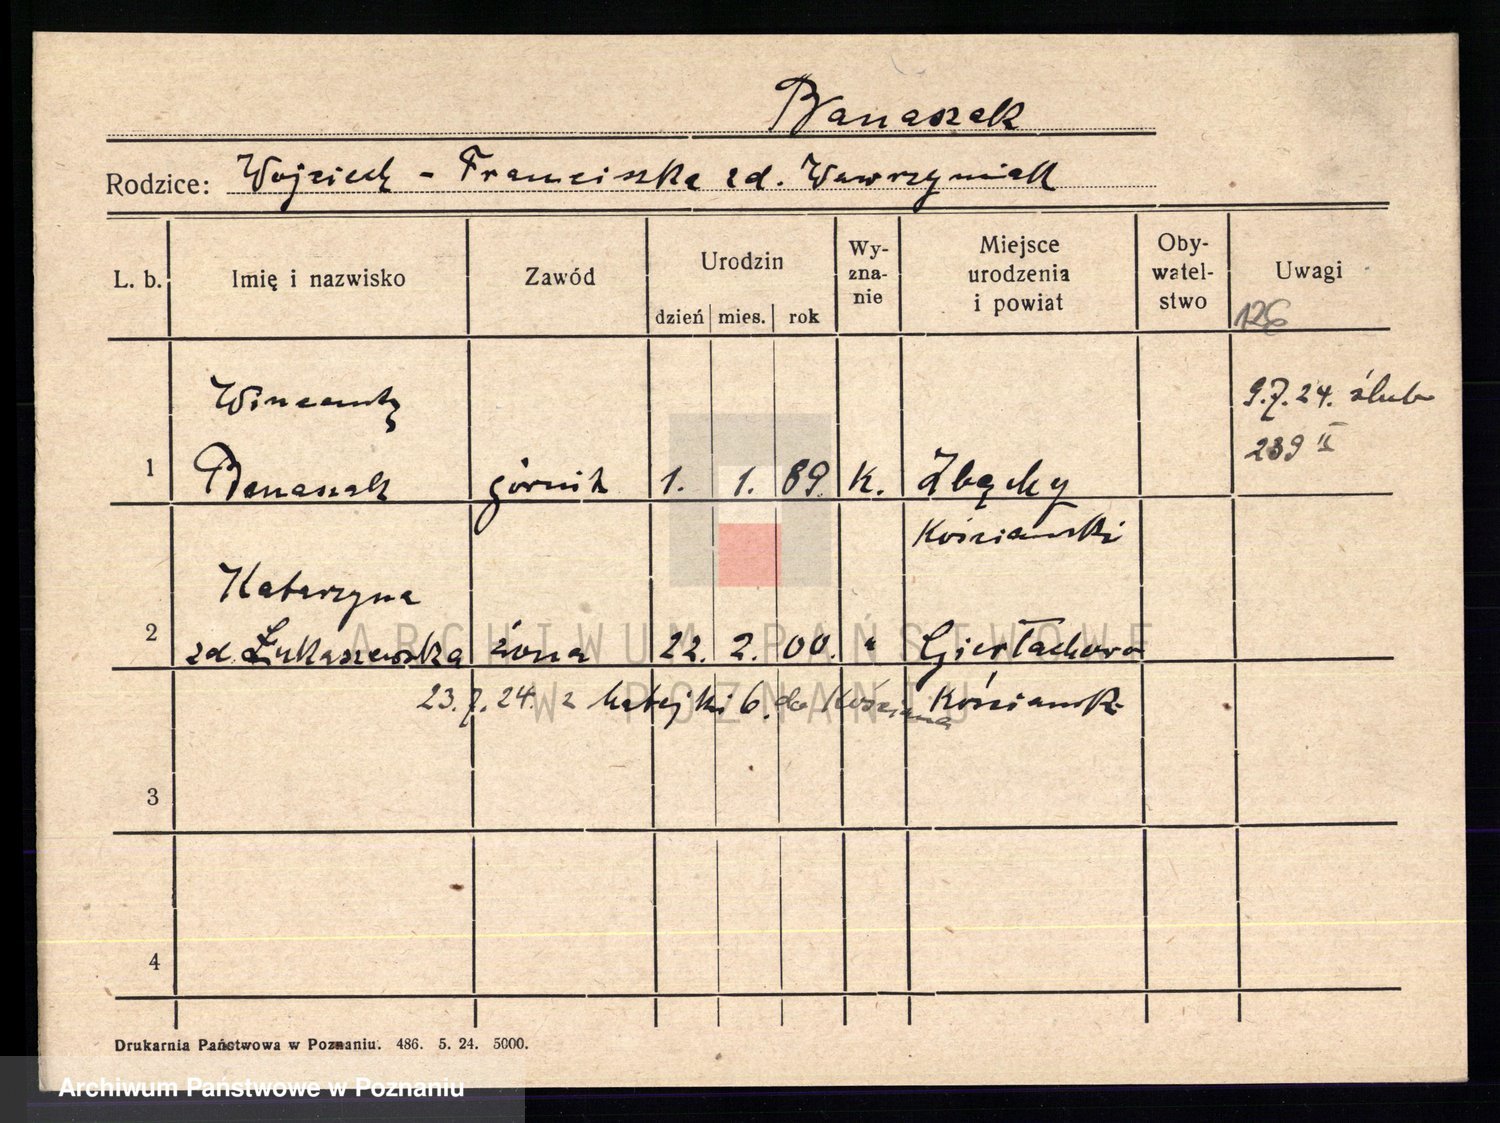 Banaszak
Rodzice: Wojciech - Franciszka zd. Wawrzyniak
L. b.
Imię i nazwisko
Zawód
Urodzin
dzień mies. rok
Wy-
zna-
nie
Miejsce
urodzenia
i powiat
Oby-
watel-
stwo
Uwagi
126
Wincenty
9.7.24. ślub
239 II
1 Banaszak górnik 1. 1. 89. K. Zbęchy
Kościański
Katarzyna
2 zd. Łukaszewska żona 22. 2. 00. " Gierłachowo
23.7.24. z Matejki 6. do Kościana Kościańsk.
3
4
Drukarnia Państwowa w Poznaniu. 486. 5. 24. 5000.
ARCHIWUM PAŃSTWOWE
W POZNANIU
Archiwum Państwowe w Poznaniu